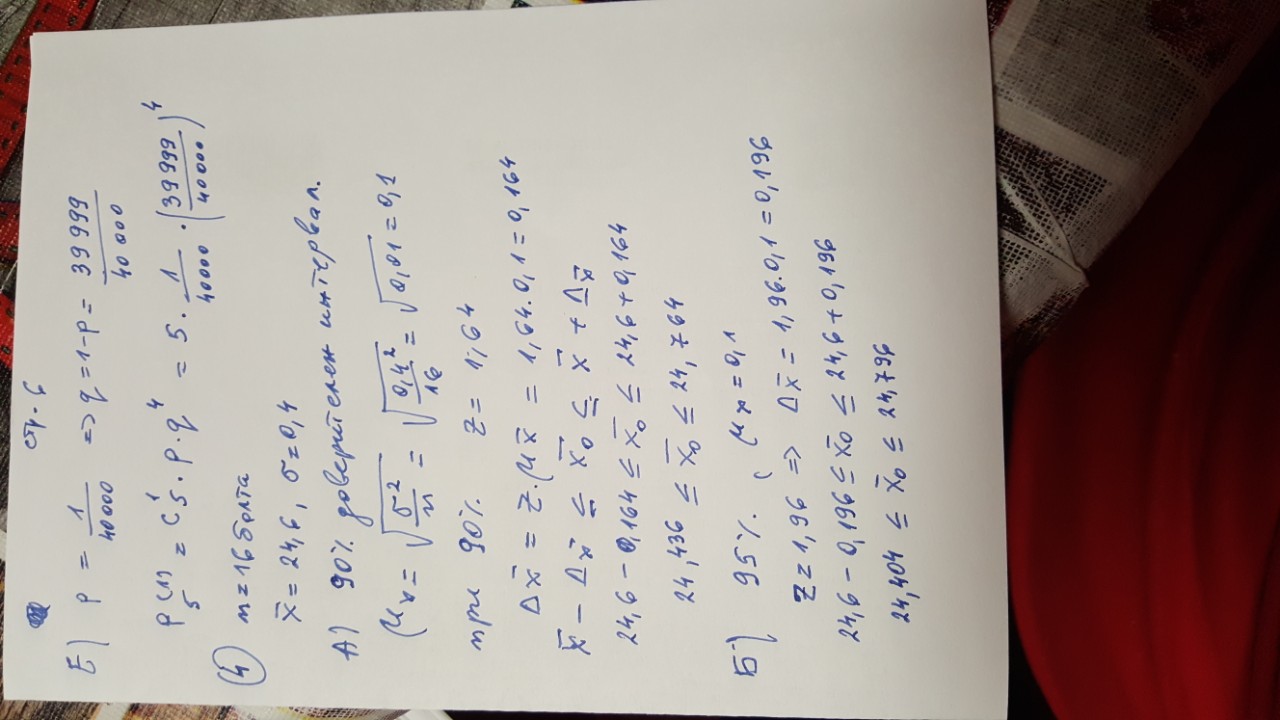 стр. 6
Е) p = 1/40000 => q = 1-p = 39999/40000
P₅(1) = C₅¹ . p . q⁴ = 5 . 1/40000 . (39999/40000)⁴
④ n = 16 болта
x̄ = 24,6, σ = 0,4
А) 90% доверителен интервал.
μₓ = √(σ²/n) = √(0,4²/16) = √0,01 = 0,1
при 90% z = 1,64
Δx̄ = z.μx̄ = 1,64.0,1 = 0,164
x̄ - Δx̄ ≤ x̄₀ ≤ x̄ + Δx̄
24,6 - 0,164 ≤ x̄₀ ≤ 24,6 + 0,164
24,436 ≤ x̄₀ ≤ 24,764
Б) 95%, μₓ = 0,1
z = 1,96 => Δx̄ = 1,96.0,1 = 0,196
24,6 - 0,196 ≤ x̄₀ ≤ 24,6 + 0,196
24,404 ≤ x̄₀ ≤ 24,796